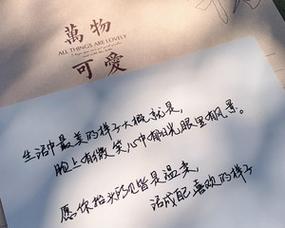 萬物
ALL THINGS ARE LOVELY
可愛
生活中最美的样子大概就是，
脸上有微笑心中有阳光眼里有风景。
愿你抬头所见皆是温柔，
活成自己喜欢的样子